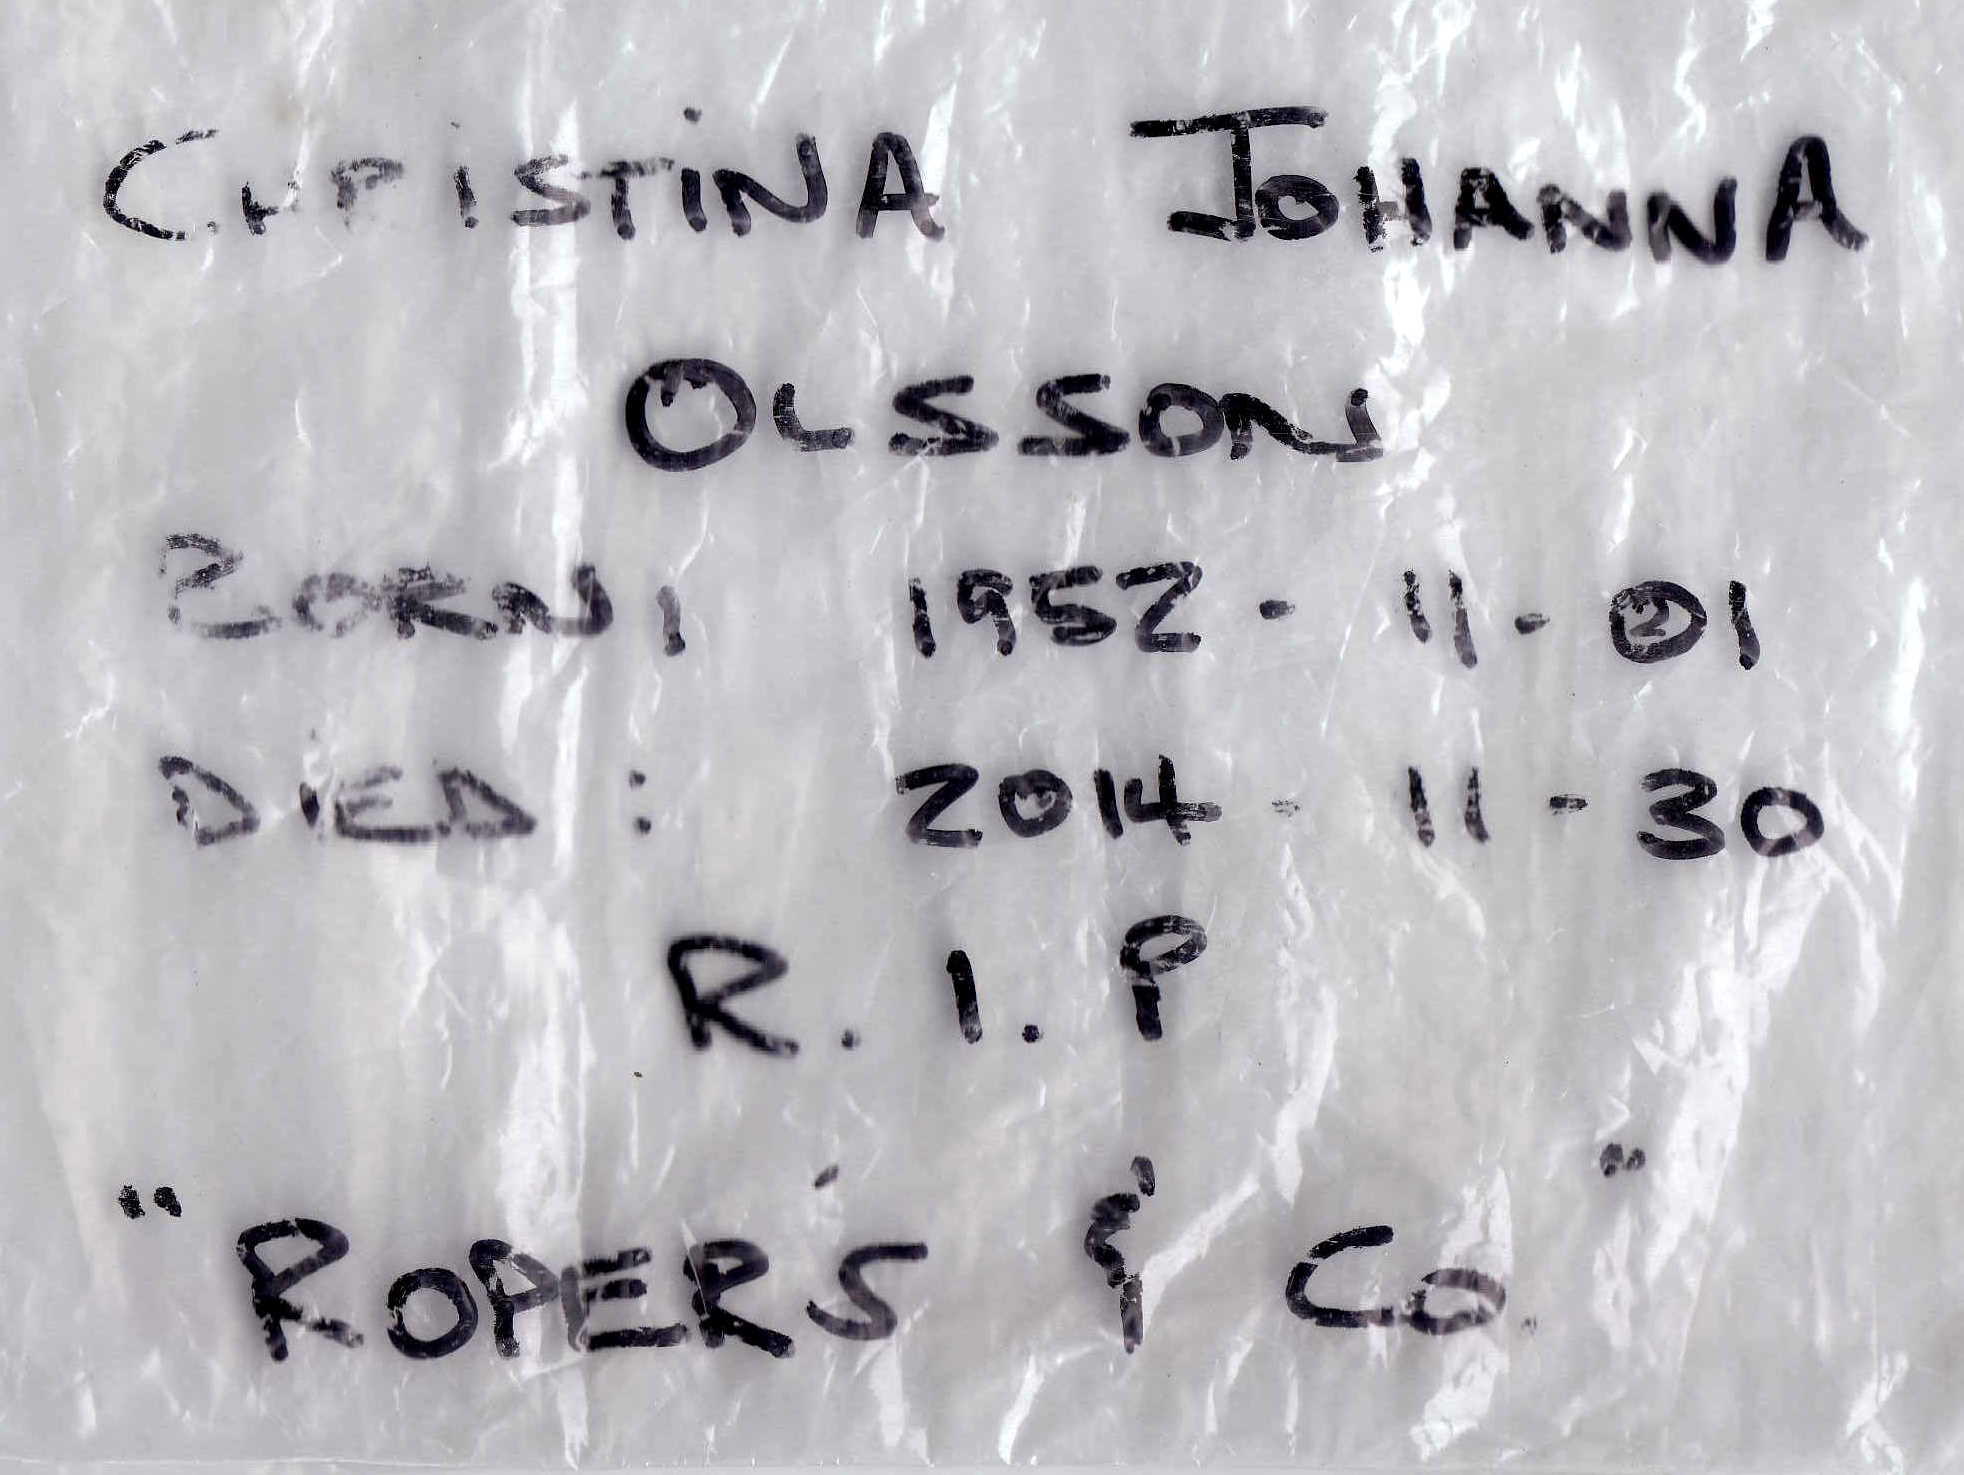 CHRISTINA JOHANNA
OLSSON
BORN: 1952-11-01
DIED: 2014-11-30
R.I.P
"ROPER'S & Co."